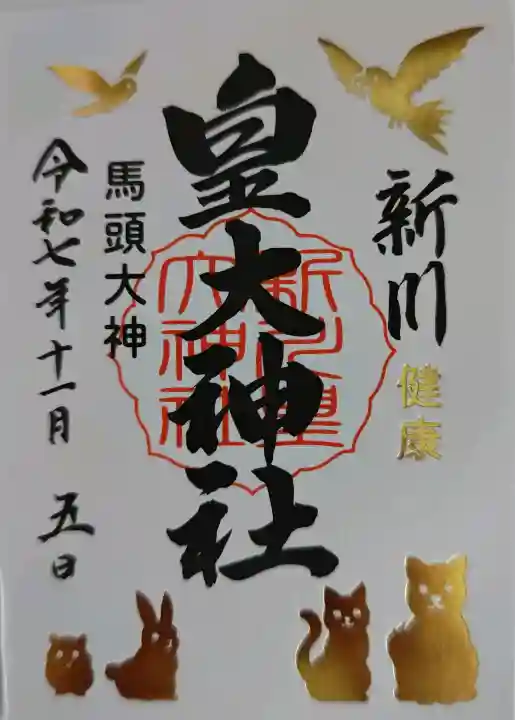 新川
健康
皇大神社
新川皇
大神社
馬頭大神
令和七年十一月 五日